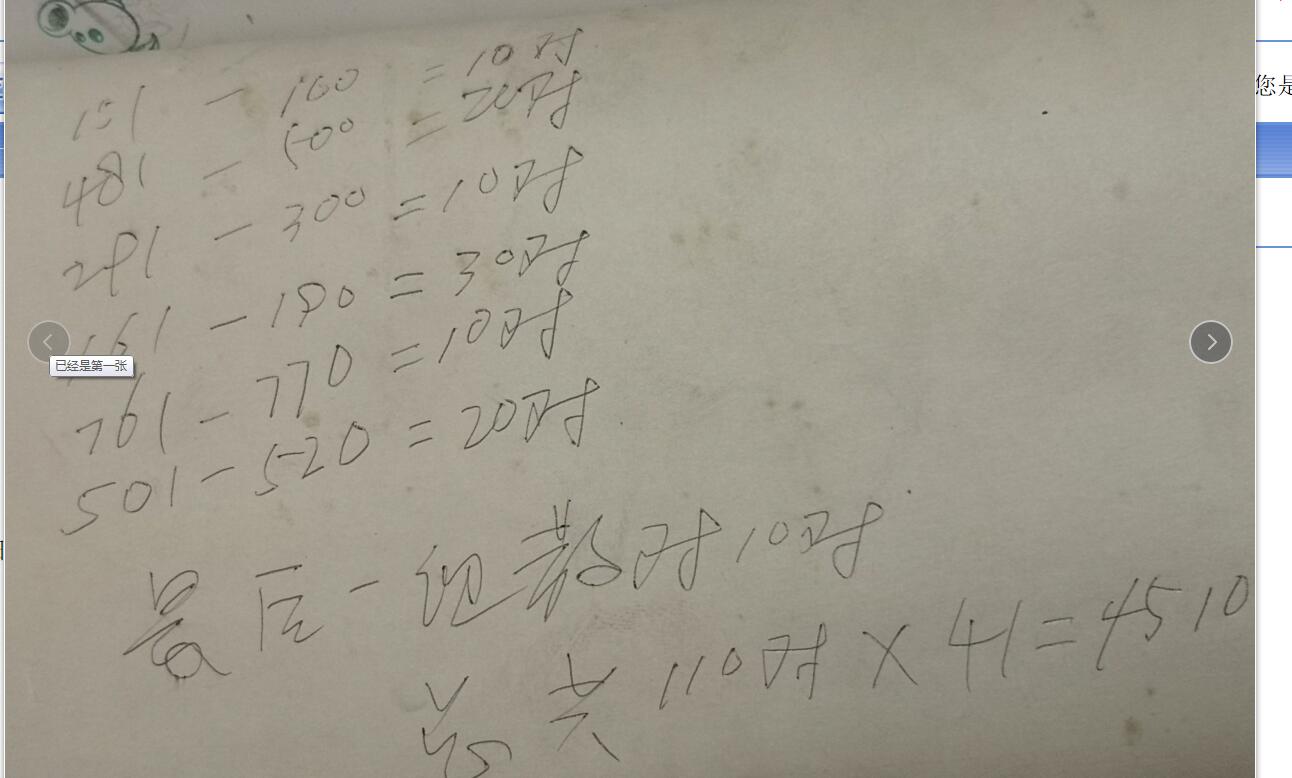 151 - 160 = 10对
481 - 500 = 20对
291 - 300 = 10对
161 - 190 = 30对
761 - 770 = 10对
501 - 520 = 20对
最后一组散对10对
总共110对×41=4510
已经是第一张
您是